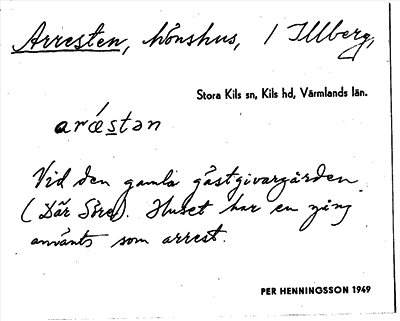 Arresten, hönshus, / Illberg,
Stora Kils sn, Kils hd, Värmlands län.
arǽstən
Vid den gamla gästgivargården
(Där Söre). Huset har en gång
använts som arrest.
PER HENNINGSSON 1949